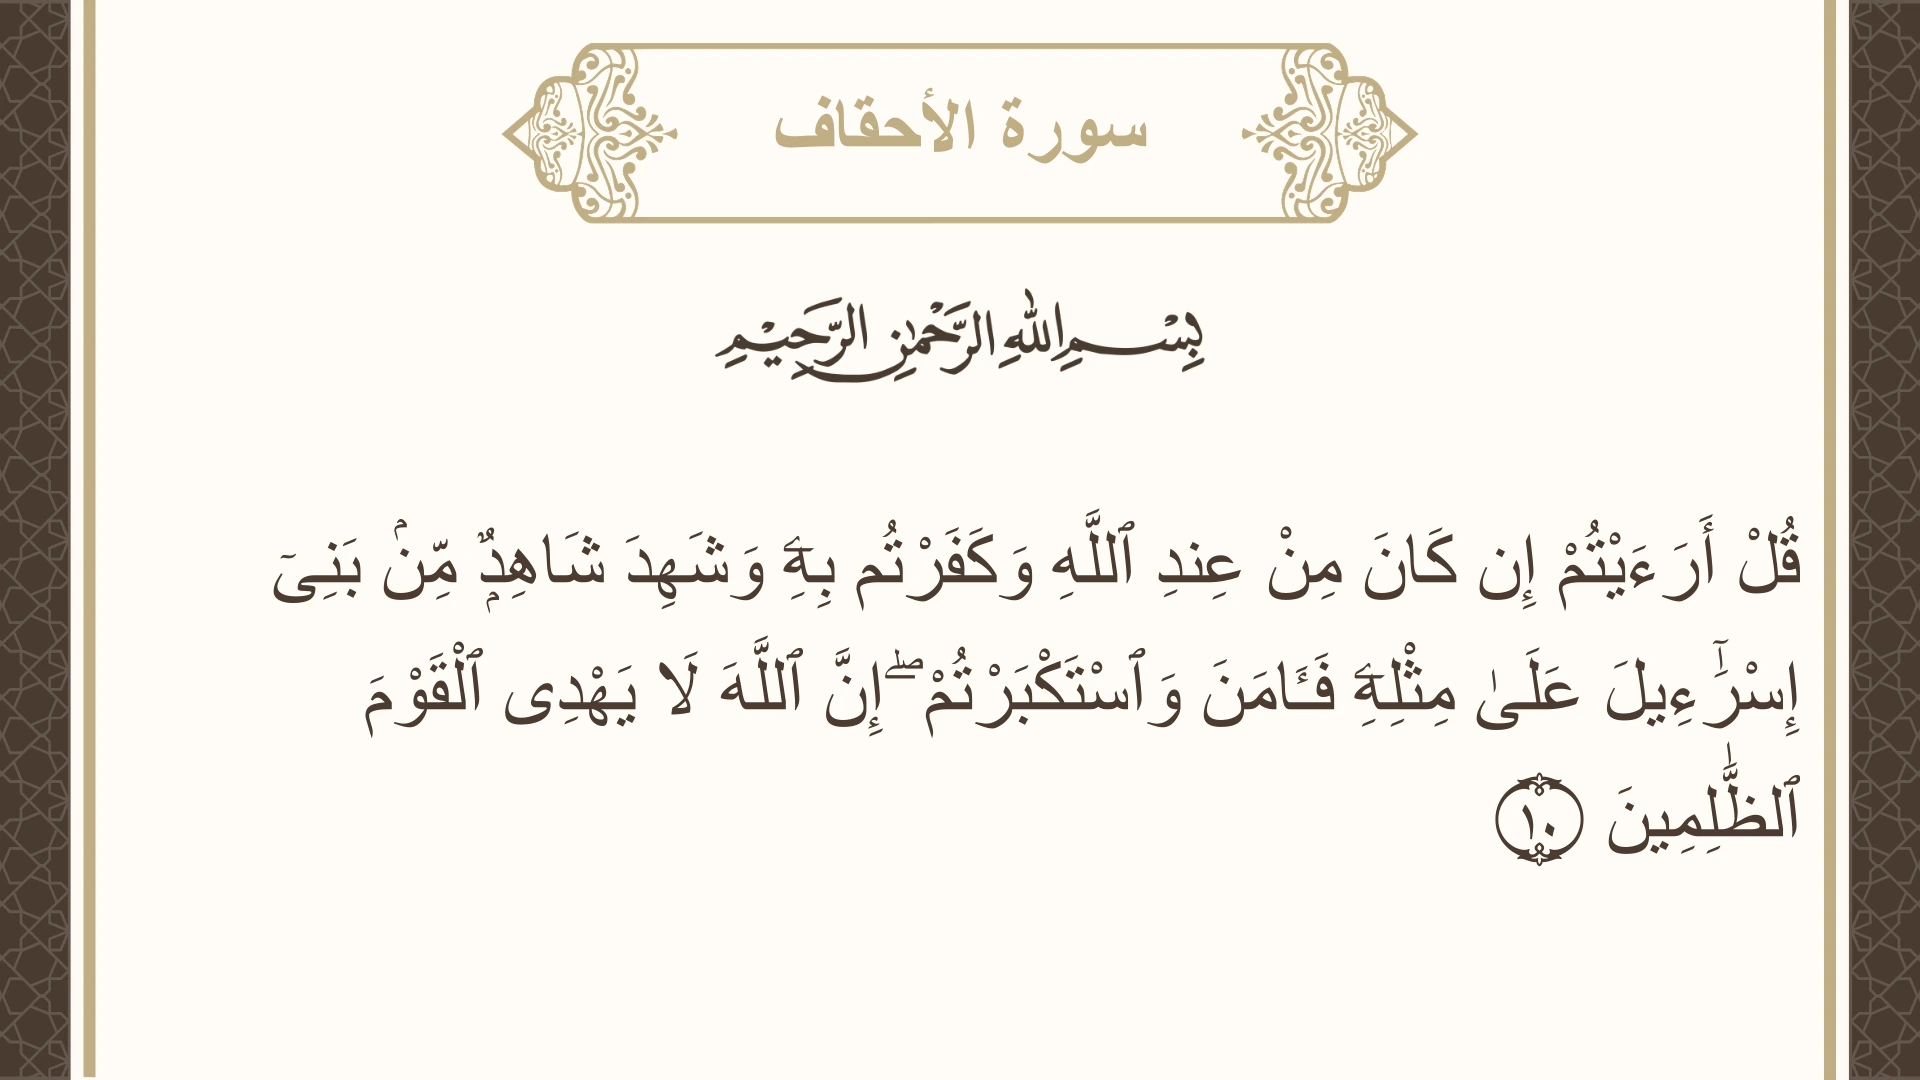 سورة الأحقاف
بِسْمِ اللهِ الرَّحْمٰنِ الرَّحِيْمِ
قُلْ أَرَءَيْتُمْ إِن كَانَ مِنْ عِندِ ٱللَّهِ وَكَفَرْتُم بِهِۦٓ وَشَهِدَ شَاهِدٌۭ مِّنۢ بَنِىٓ
إِسْرَٰٓءِيلَ عَلَىٰ مِثْلِهِۦٓ فَـَٔامَنَ وَٱسْتَكْبَرْتُمْ ۖ إِنَّ ٱللَّهَ لَا يَهْدِى ٱلْقَوْمَ
ٱلظَّٰلِمِينَ ١٠